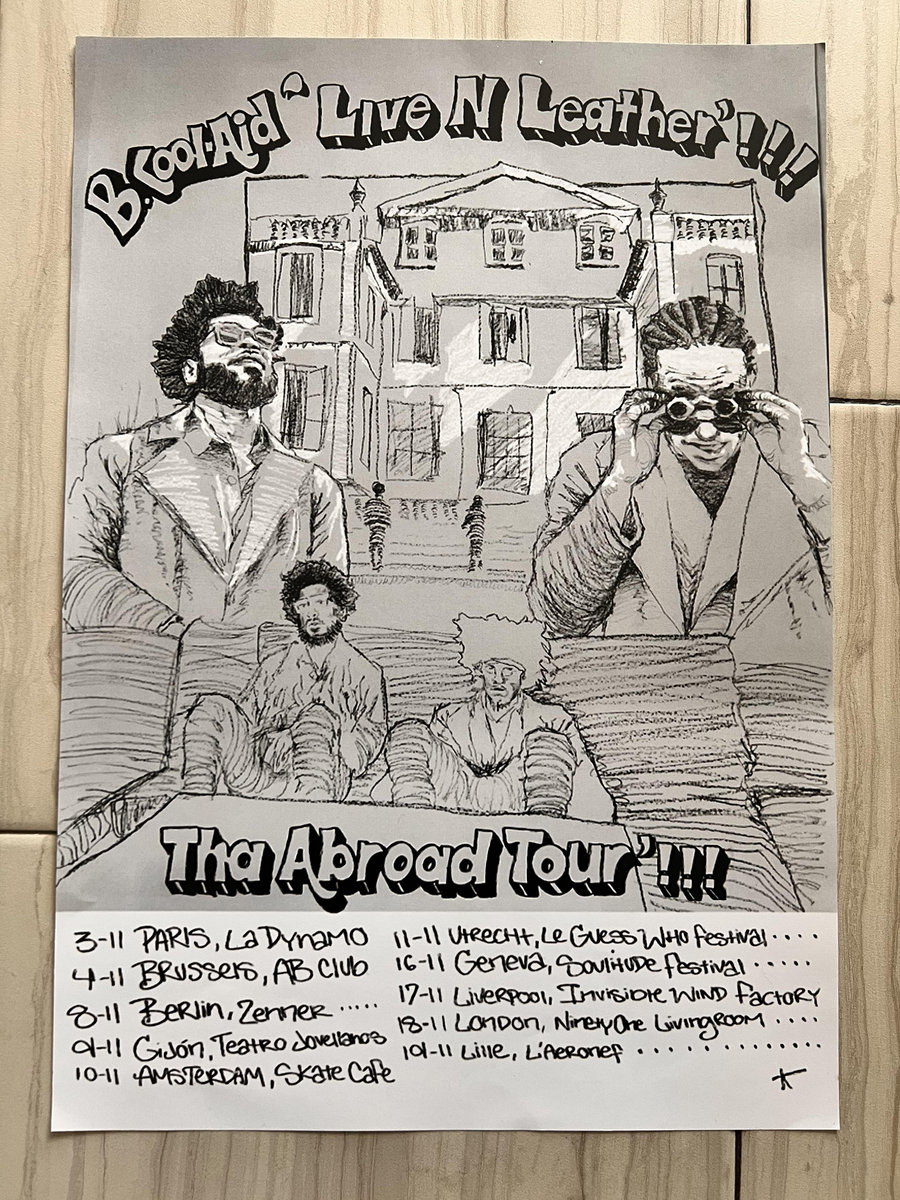 B. Cool-Aid "Live N Leather"!!!
Tha Abroad Tour"!!!
3-11 PARIS, La Dynamo
4-11 Brussels, AB Club
8-11 Berlin, Zenner .....
9-11 Gijón, Teatro Jovellanos
10-11 AMSTERDAM, Skate Cafe
11-11 Utrecht, Le Guess Who Festival ....
16-11 Geneva, Soulitude Festival .....
17-11 Liverpool, Invisible Wind Factory
18-11 London, NinetyOne Livingroom ....
19-11 Lille, L'Aeronef .............